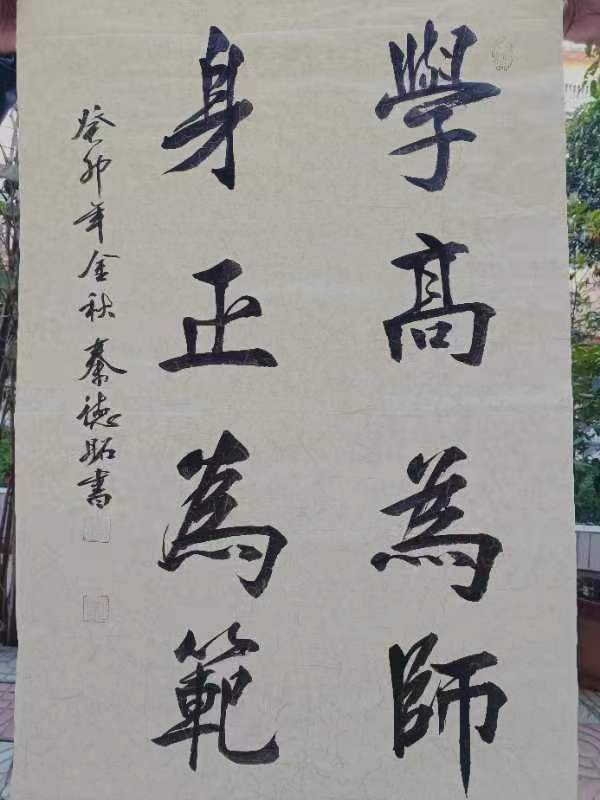 學高為師
身正為範
癸卯年金秋秦德貽書